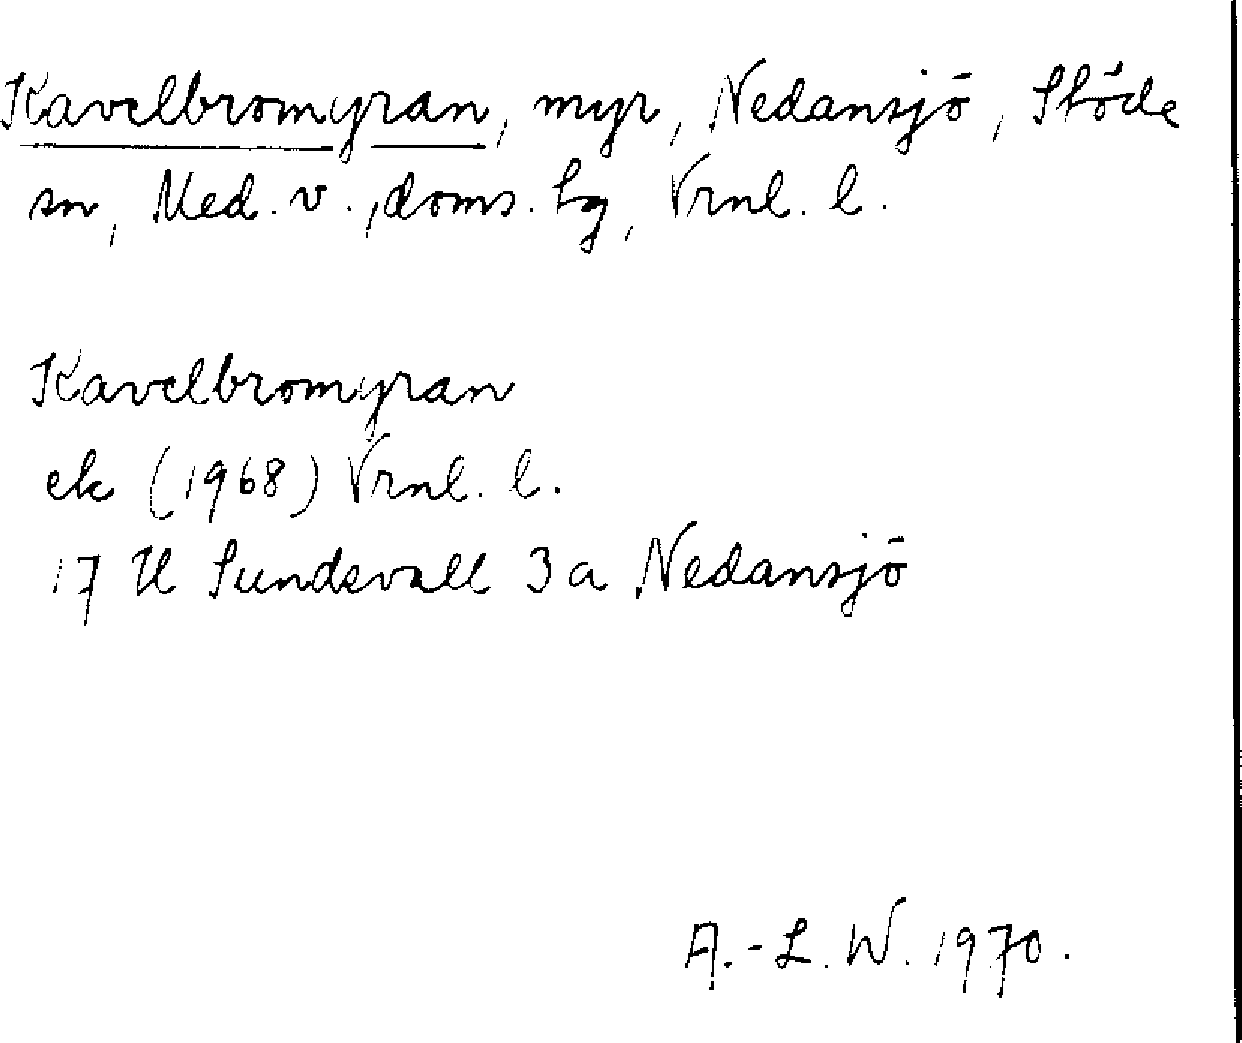 Kavelbromyran, myr, Nedansjö, Stöde
sn, Med. v., doms. hg, Vrnl. l.
Kavelbromyran
ek (1968) Vrnl. l.
17 H Sundsvall 3a Nedansjö
A.-L. W. 1970.